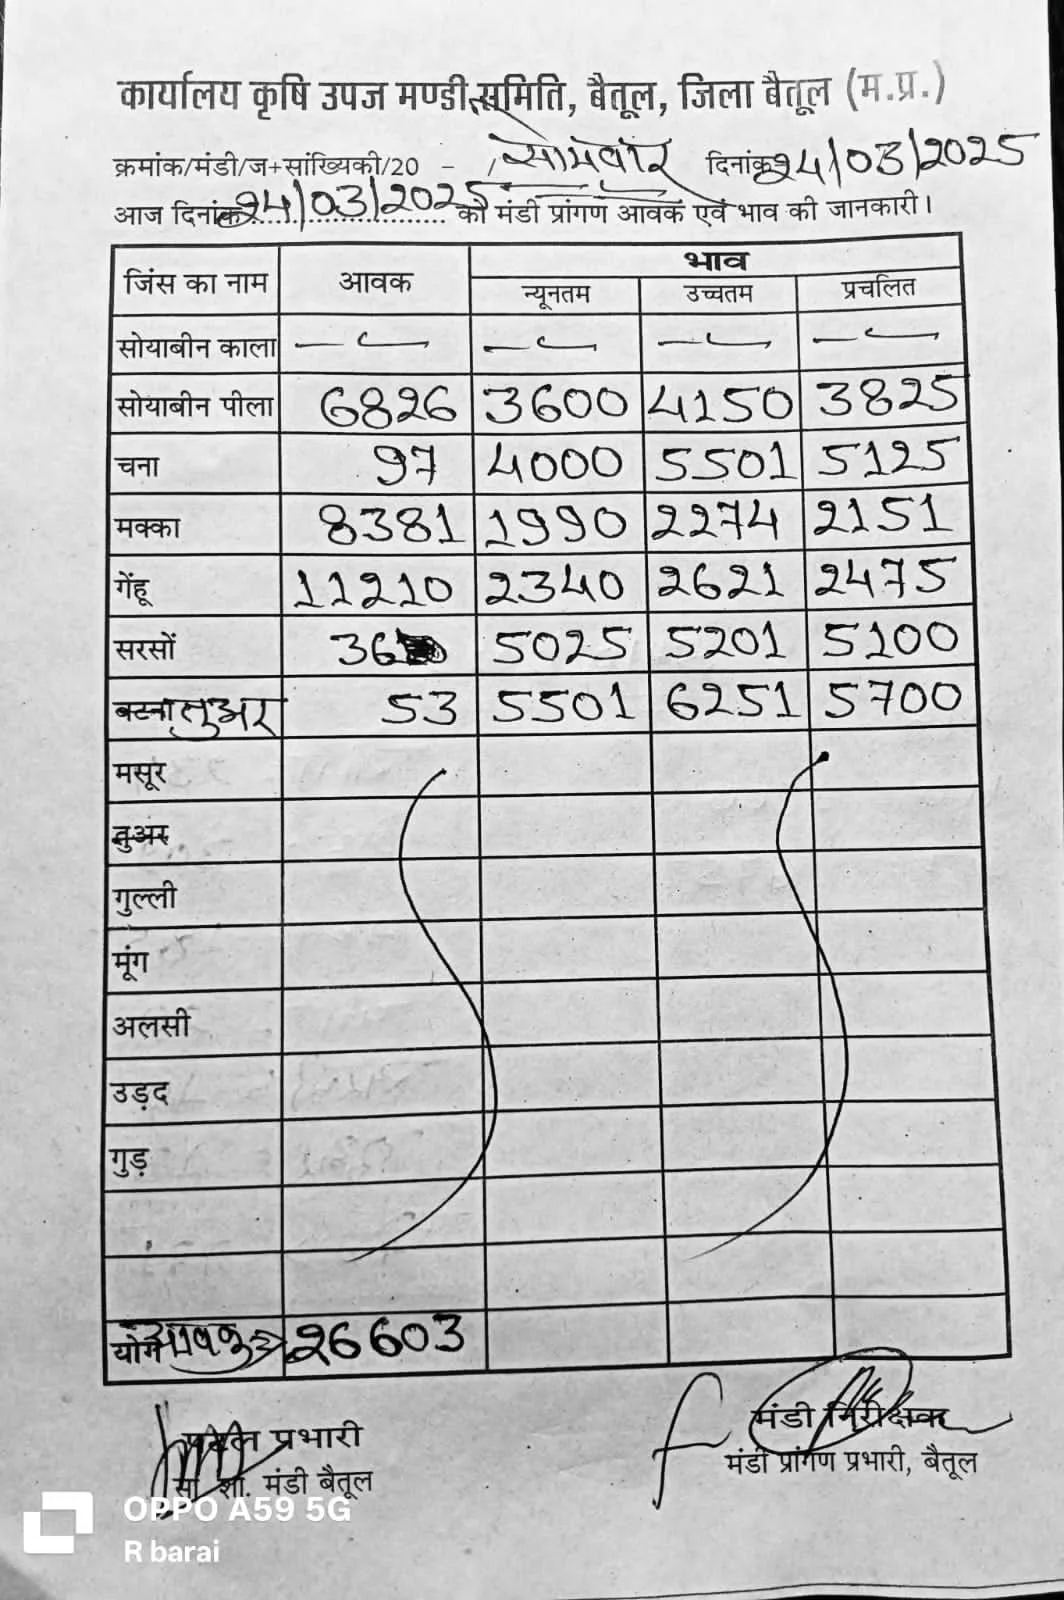 कार्यालय कृषि उपज मण्डी समिति, बैतूल, जिला बैतूल (म.प्र.)
क्रमांक/मंडी/ज+सांख्यिकी/20 - , सोमवार दिनांक 24/03/2025
आज दिनांक 24/03/2025 को मंडी प्रांगण आवक एवं भाव की जानकारी।
जिंस का नाम आवक भाव
न्यूनतम उच्चतम प्रचलित
सोयाबीन काला — — — —
सोयाबीन पीला 6826 3600 4150 3825
चना 97 4000 5501 5125
मक्का 8381 1990 2274 2151
गेंहू 11210 2340 2621 2475
सरसों 36 5025 5201 5100
बटना तुअर 53 5501 6251 5700
मसूर
तुअर
गुल्ली
मूंग
अलसी
उड़द
गुड़
योग आवक 26603
प्रभारी मंडी निरीक्षक
मंडी बैतूल मंडी प्रांगण प्रभारी, बैतूल
OPPO A59 5G
R barai